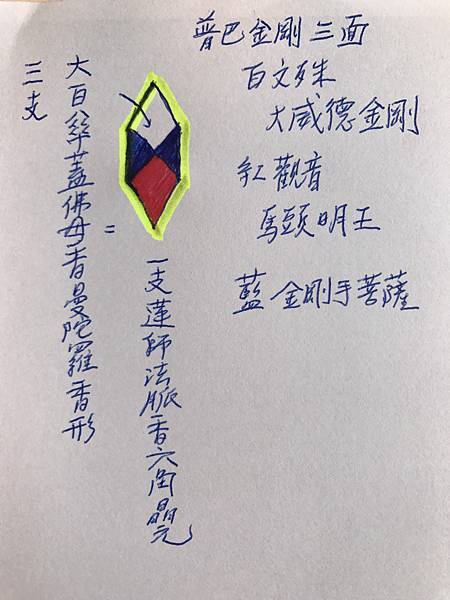 普巴金剛三面
百文殊
大威德金剛
紅觀音
馬頭明王
藍 金剛手菩薩
三支
大百傘蓋佛母香曼陀羅香形
=
一支蓮師法脈香六角晶元